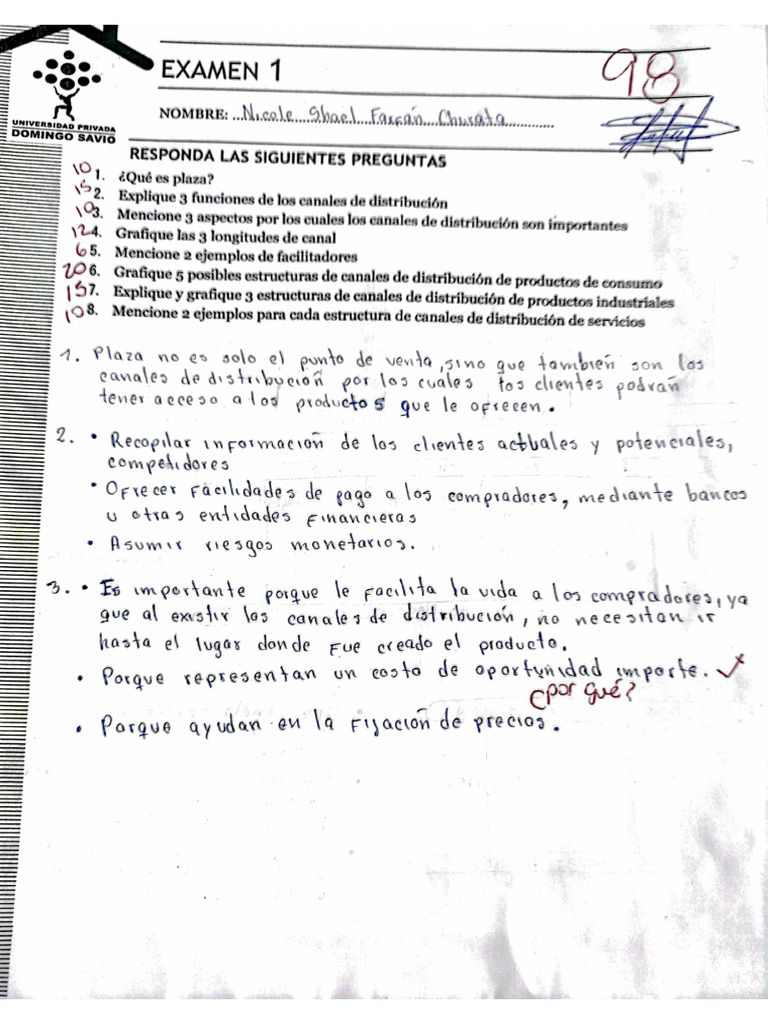 98
EXAMEN 1
UNIVERSIDAD PRIVADA
DOMINGO SAVIO
NOMBRE: Nicole Shael Farfán Churata
RESPONDA LAS SIGUIENTES PREGUNTAS
10 1. ¿Qué es plaza?
15 2. Explique 3 funciones de los canales de distribución
10 3. Mencione 3 aspectos por los cuales los canales de distribución son importantes
12 4. Grafique las 3 longitudes de canal
6 5. Mencione 2 ejemplos de facilitadores
20 6. Grafique 5 posibles estructuras de canales de distribución de productos de consumo
15 7. Explique y grafique 3 estructuras de canales de distribución de productos industriales
10 8. Mencione 2 ejemplos para cada estructura de canales de distribución de servicios
1. Plaza no es solo el punto de venta, sino que también son los
canales de distribución por los cuales los clientes podrán
tener acceso a los productos que le ofrecen.
2. • Recopilar información de los clientes actuales y potenciales,
competidores
• Ofrecer facilidades de pago a los compradores, mediante bancos
u otras entidades financieras
• Asumir riesgos monetarios.
3. • Es importante porque le facilita la vida a los compradores, ya
que al existir los canales de distribución, no necesitan ir
hasta el lugar donde fue creado el producto.
• Porque representan un costo de oportunidad importe.
¿por qué?
• Porque ayudan en la fijación de precios.